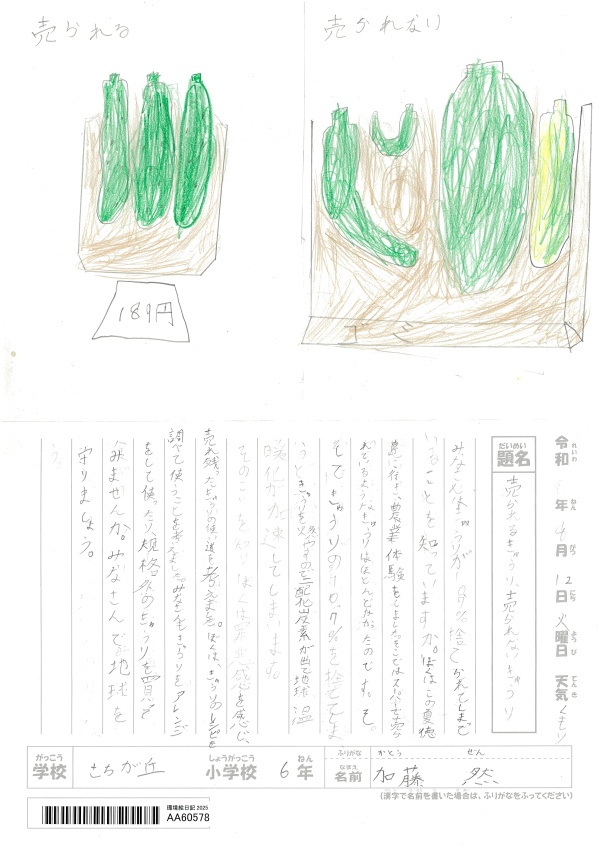 売られる
売られない
189円
ゴミ
令和 年 9月 12日 火曜日 天気 くもり
題名 売られるきゅうり、売られないきゅうり
だいめい
みなさんは、きゅうりが
いることを知っていますか。ぼくはこの夏徳
島に行き、農業体験をしました。そこではスーパーで売ら
れているようなきゅうりはほとんどなかったのです。そ
してきゅうりの10.7%を捨ててしま
うときゅうりを燃やすので二酸化炭素が出て地球温
暖化が加速してしまいます
そのことを知り、ぼくは罪悪感を感じ、
売れ残ったきゅうりの使い道を考えました。ぼくは、きゅうりのレシピを
調べて使うことを考えました。みなさんもきゅうりをアレンジ
をして使ったり、規格外のきゅうりを買って
みませんか。みなさんで地球を
守りましょう。
がっこう しょうがっこう ねん ふりがな かとう ぜん
学校 さちが丘 小学校 6年 なまえ 名前 加藤 然
(漢字で名前を書いた場合は、ふりがなをふってください)
環境絵日記 2025
AA60578